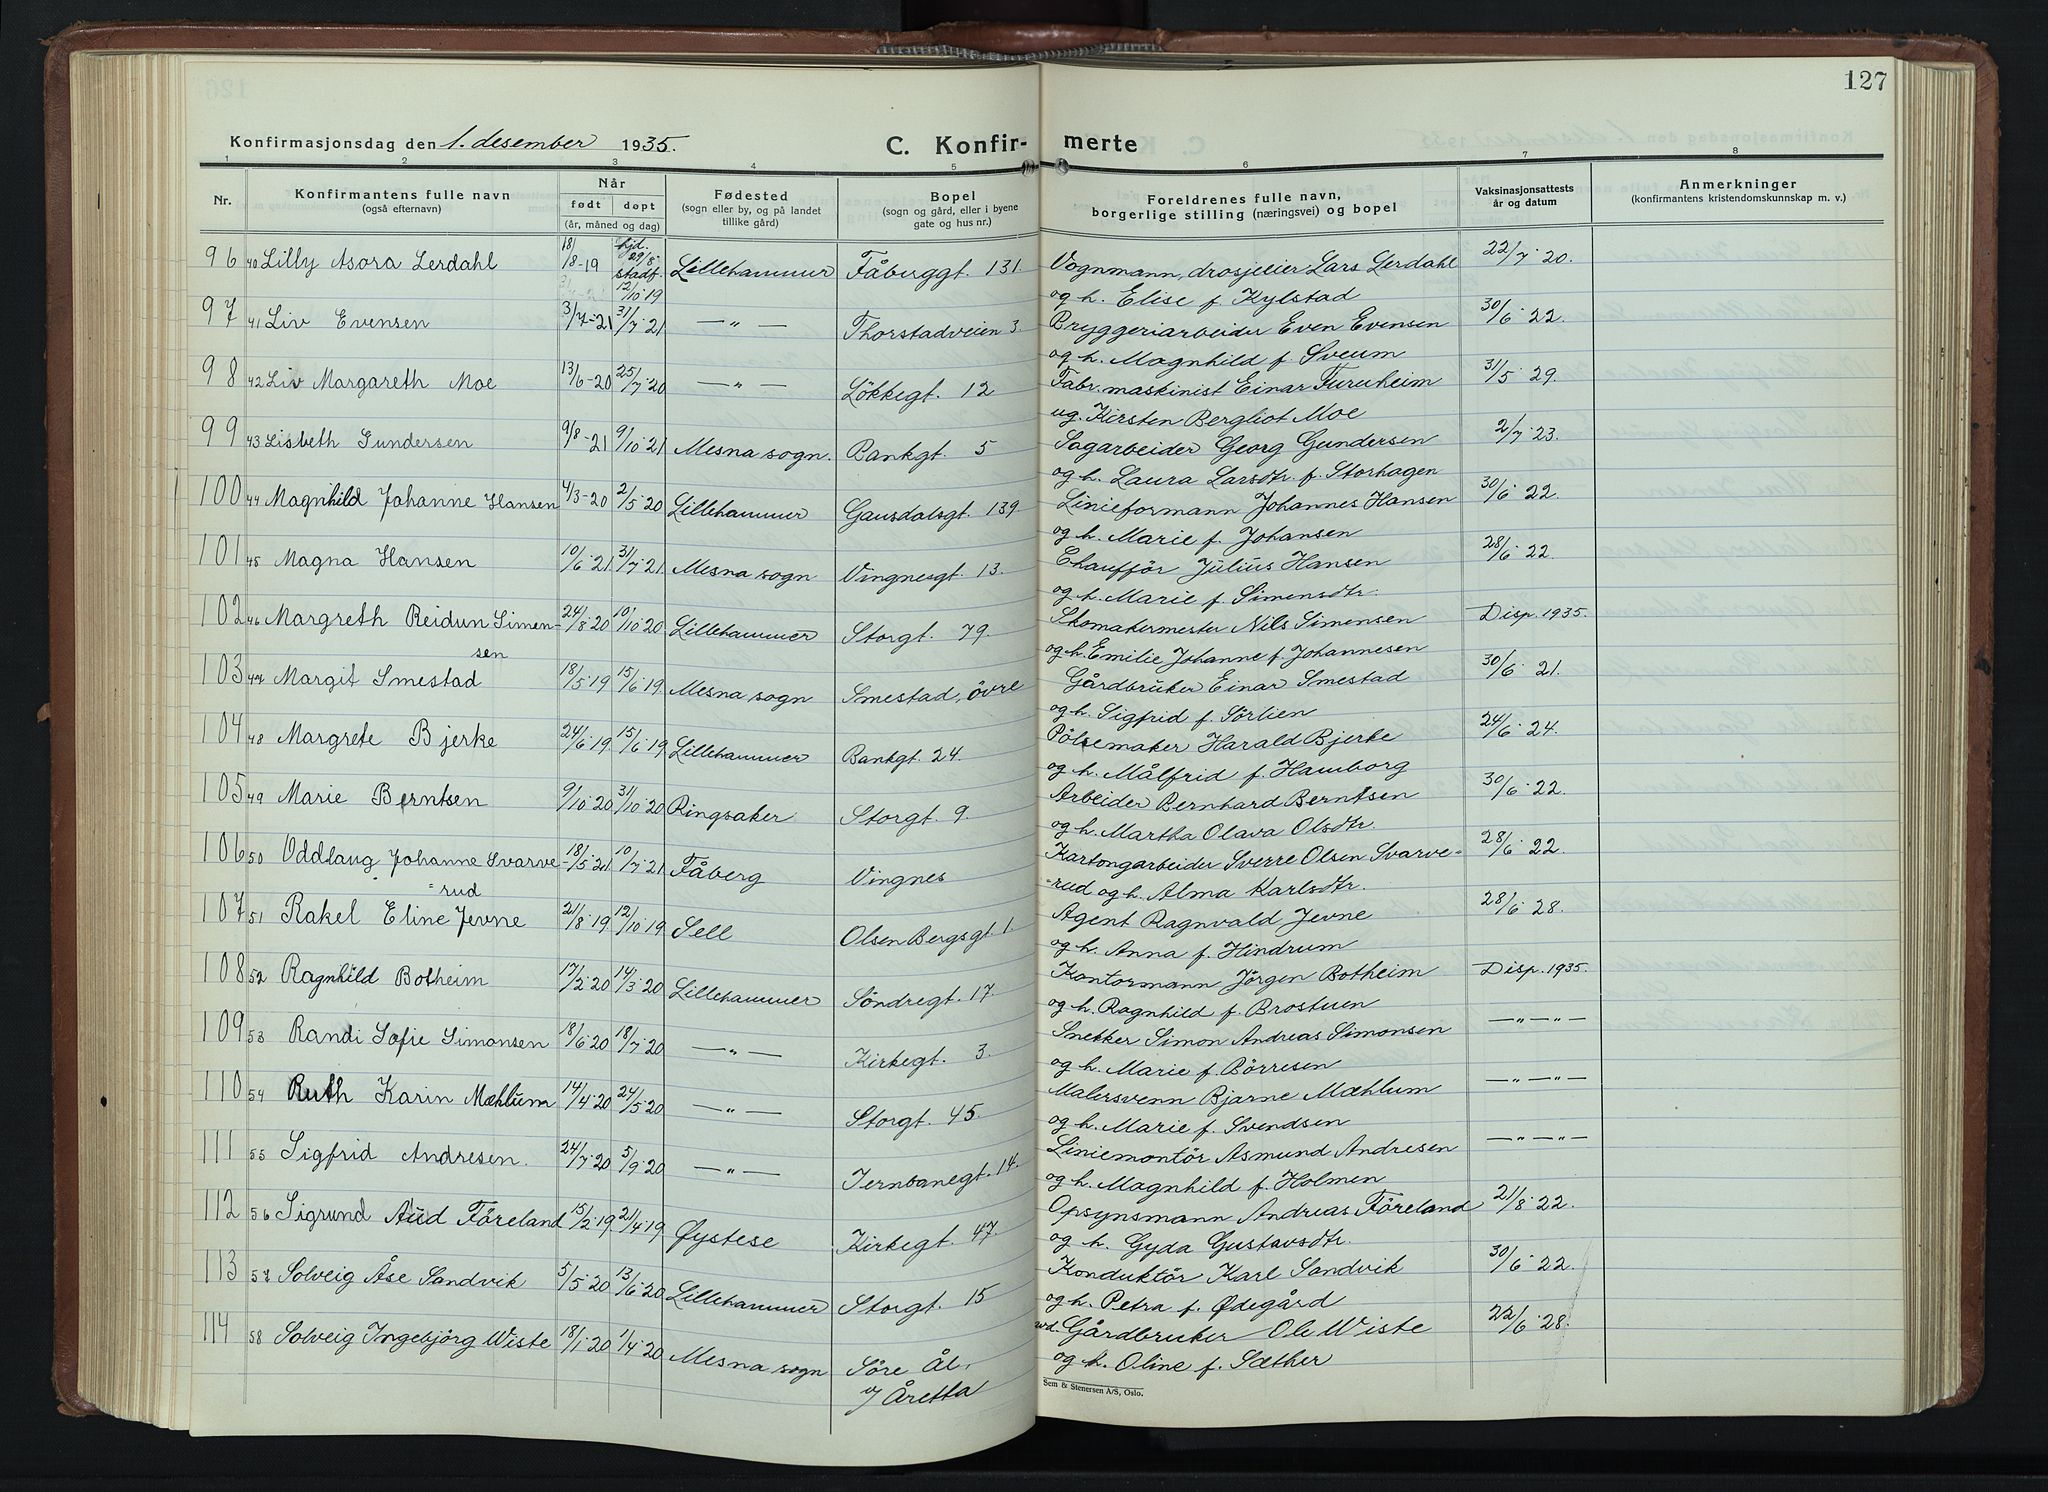 127
Konfirmasjonsdag den 1. desember 1935.
C. Konfirmerte
1 2 3 4 5 6 7 8
Nr.
Konfirmantens fulle navn
(også efternavn)
Når
født døpt
(år, måned og dag)
Fødested
(sogn eller by, og på landet
tillike gård)
Bopel
(sogn og gård, eller i byene
gate og hus nr.)
Foreldrenes fulle navn,
borgerlige stilling (næringsvei) og bopel
Vaksinasjonsattests
år og datum
Anmerkninger
(konfirmantens kristendomskunnskap m. v.)
96 40 Lilly Asora Lerdahl 18/8-19 hjd. 29/8 stadf. 12/10 19 Lillehammer Fåberggt. 131. Vognmann, drosjeeier Lars Lerdahl 22/7 20.
og h. Elise f. Kylstad
97 41 Liv Evensen 3/7-21 31/7 21 — " — Thorstadveien 3. Bryggeriarbeider Even Evensen 30/6 22.
og h. Magnhild f. Sveum
98 42 Liv Margareth Moe 13/6-20 25/7 20 — " — Løkkegt. 12 Fabr. maskinist Einar Furuheim 31/5 29.
ug. Kirsten Bergliot Moe
99 43 Lisbeth Gundersen 9/8-21 9/10 21 Mesna sogn. Bankgt. 5 Sagarbeider Georg Gundersen 2/7 23.
og h. Laura Larsdtr. f. Storhagen
100 44 Magnhild Johanne Hansen 4/3-20 2/5 20 Lillehammer Gausdalsgt. 139 Linieformann Johannes Hansen 30/6 22.
og h. Marie f. Johansen
101 45 Magna Hansen 10/6 21 31/7 21 Mesna sogn Vingnesgt. 13. Chauffør Julius Hansen 28/6 22.
og h. Marie f. Simensdtr.
102 46 Margreth Reidun Simen- 24/8 20 10/10 20 Lillehammer Storgt. 79. Skomakermester Nils Simensen Disp. 1935.
sen
og h. Emilie Johanne f. Johannesen
103 47 Margit Smestad 18/5 19 15/6 19 Mesna sogn Smestad, øvre Gårdbruker Einar Smestad 30/6 21.
og h. Sigfrid f. Sørlien
104 48 Margrete Bjerke 24/6 19 15/6 19 Lillehammer Bankgt. 24. Pølsemaker Harald Bjerke 24/6 24.
og h. Målfrid f. Hamborg
105 49 Marie Berntsen 9/10 20 31/10 20 Ringsaker Storgt. 9. Arbeider Bernhard Berntsen 30/6 22.
og h. Martha Olava Olsdtr.
106 50 Oddlaug Johanne Svarve- 18/5 21 10/7 21 Fåberg Vingnes Kartongarbeider Sverre Olsen Svarve- 28/6 22.
-rud
-rud og h. Alma Karlsdtr.
107 51 Rakel Eline Jevne 21/8 19 12/10 19 Sell Olsen Bergsgt. 1. Agent Ragnvald Jevne 28/6 28.
og h. Anna f. Hindrum
108 52 Ragnhild Botheim 17/2 20 14/3 20 Lillehammer Söndregt. 17 Kontormann Jörgen Botheim Disp. 1935.
og h. Ragnhild f. Brostuen
109 53 Randi Sofie Simonsen 18/6 20 18/7 20 — " — Kirkegt. 3. Snekker Simon Andreas Simonsen — " — " —
og h. Marie f. Börresen
110 54 Ruth Karin Mæhlum 14/4 20 24/5 20 — " — Storgt. 45. Malersvenn Bjarne Mæhlum — " — " —
og h. Marie f. Svendsen
111 55 Sigfrid Andresen. 24/7 20 5/9 20 — " — Jernbanegt. 14. Liniemontör Asmund Andresen — " — " —
og h. Magnhild f. Holmen
112 56 Sigrund Aud Föreland 15/2 19 21/4 19 Øystese Kirkegt. 47. Opsynsmann Andreas Föreland 21/8 22.
og h. Gyda Gustavsdtr.
113 57 Solveig Åse Sandvik 5/5 20 13/6 20 Lillehammer Storgt. 15 Konduktör Karl Sandvik 30/6 22.
og h. Petra f. Ødegård
114 58 Solveig Ingebjörg Wiste 18/1 20 1/4 20 Mesna sogn Söre Ål, Gårdbruker Ole Wiste 22/6 28.
Åretta
og h. Oline f. Sæther
Sem & Stenersen A/S, Oslo.